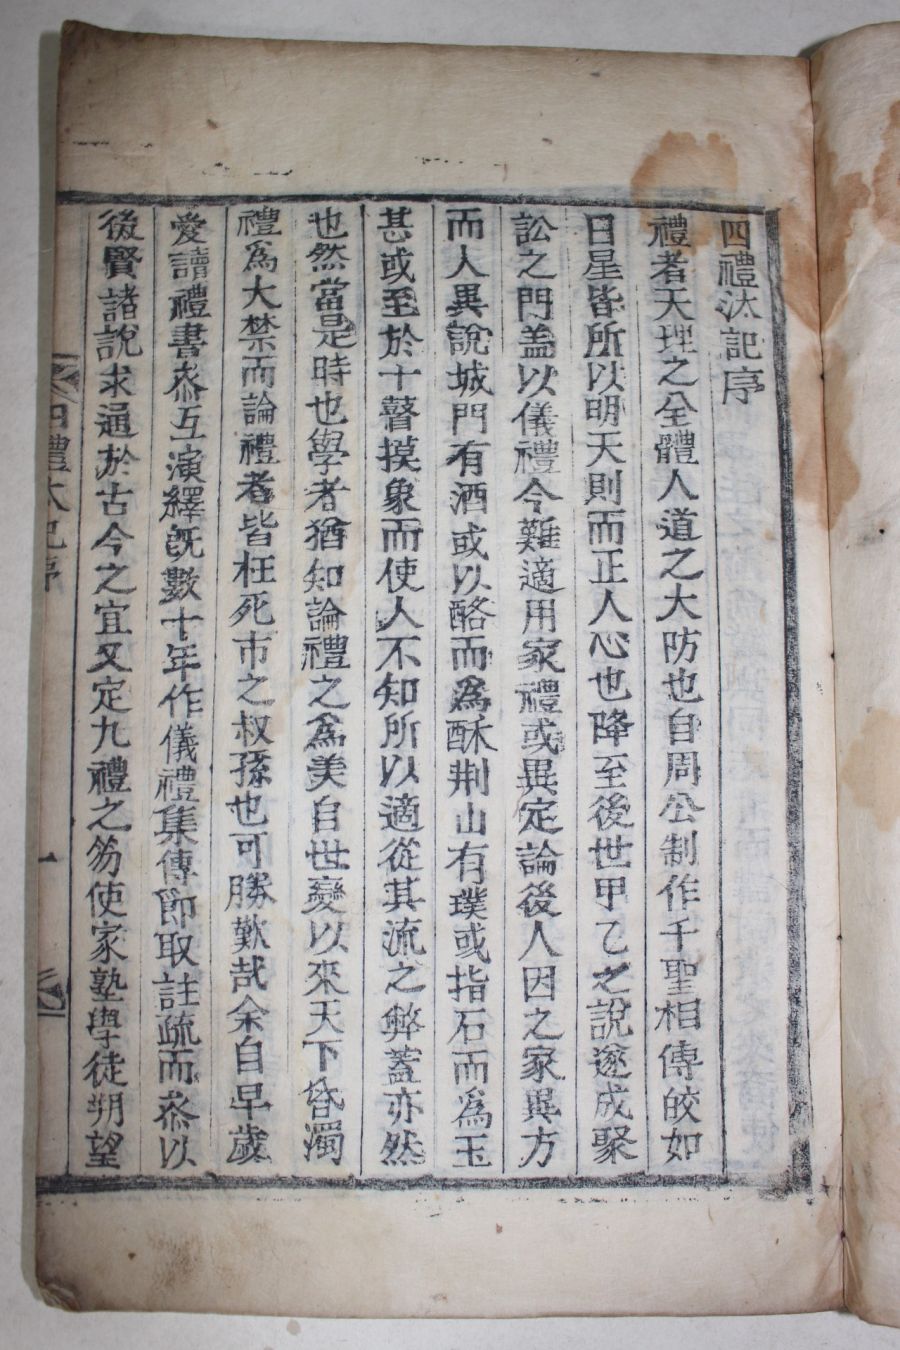 四禮汰記序
禮者天理之全體人道之大防也自周公制作千聖相傳皎如
日星皆所以明天則而正人心也降至後世甲乙之說遂成聚
訟之門盖以儀禮今難適用家禮或異定論後人因之家異方
而人異說城門有酒或以酪而爲酥荆山有璞或指石而爲玉
甚或至於十瞽摸象而使人不知所以適從其流之弊蓋亦然
也然當是時也學者猶知論禮之爲美自世變以來天下昏濁
禮爲大禁而論禮者皆枉死市之叔孫也可勝歎哉余自早歲
愛讀禮書叅互演繹旣數十年作儀禮集傳節取註疏而叅以
後賢諸說求通於古今之宜又定九禮之笏使家塾學徒朔望
四禮汰記序
一